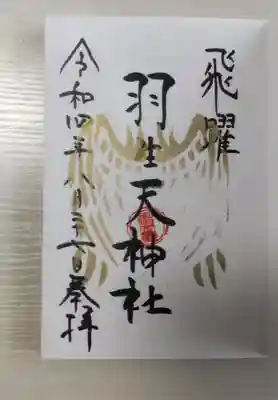 飛躍
羽生天神社
令和四年八月二十六日奉拝